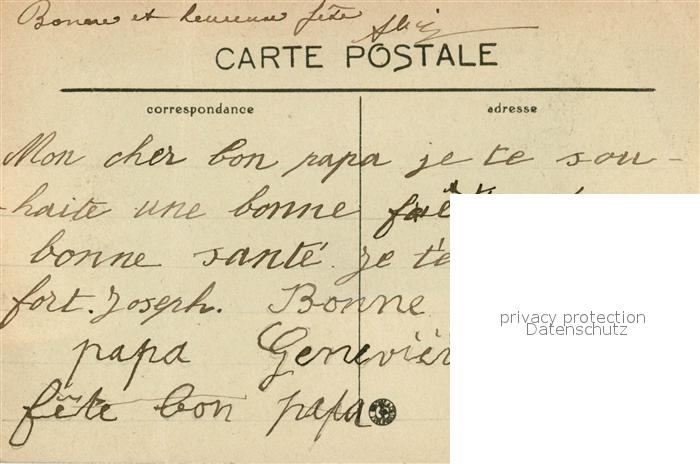 Bonne et heureuse fête
CARTE POSTALE
correspondance
adresse
Mon cher bon papa je te sou-
-haite une bonne
bonne santé. je t'e
fort. Joseph. Bonne
papa Geneviè
fête bon papa
privacy protection
Datenschutz